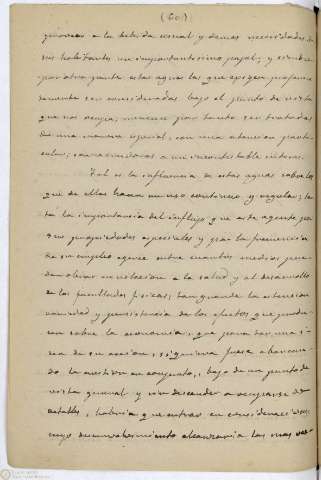 (60)
a la bebida usual y demas necesidades de
sus habitantes un importantisimo papel; y siendo
por otra parte estas aguas las que exigen
ser consideradas bajo el punto de vista
que nos ocupa, merecen por tanto ser tratadas
de una manera especial, con una atencion
a un incontestable interes.
Tal es la influencia de estas aguas sobre los
que de ellas hacen un uso continuo y regular; tan
ta la importancia del influjo que este agente por
sus propiedades especiales y por la frecuencia
de su empleo ejerce entre cuantos medios pue
den obrar en relacion a la salud y al desarrollo
de las facultades fisicas; tan grande la estension
y persistencia de los efectos que produ
cen sobre la economia, que para dar una i
dea de su accion, siquiera fuese abarcan
do la cuestion en conjunto, bajo de un punto de
vista general y sin descender a ocuparse de
detalles, habria que entrar en consideraciones
cuyo desenvolvimiento alcanzaria las mas